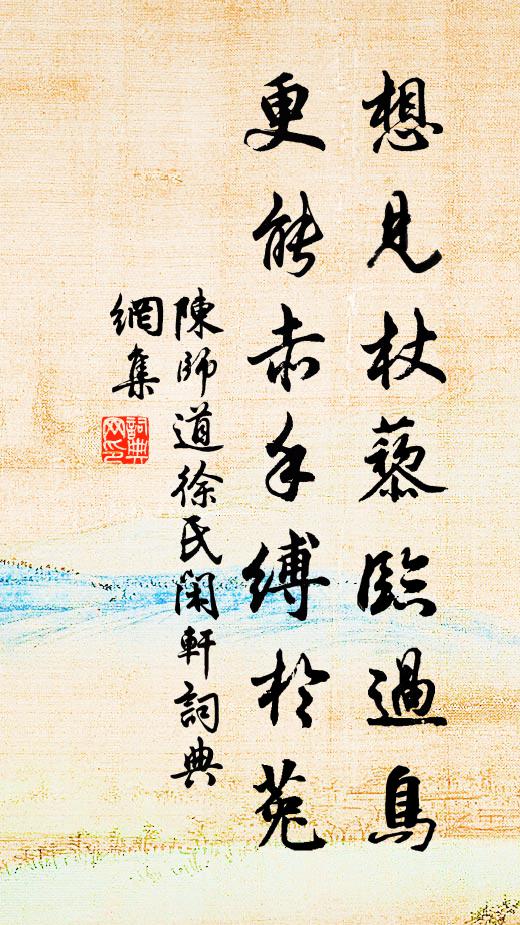 想見杖藜臨過鳥
更能赤手縛於菟
陳師道徐氏閑軒詞典
網集
詞典
網印